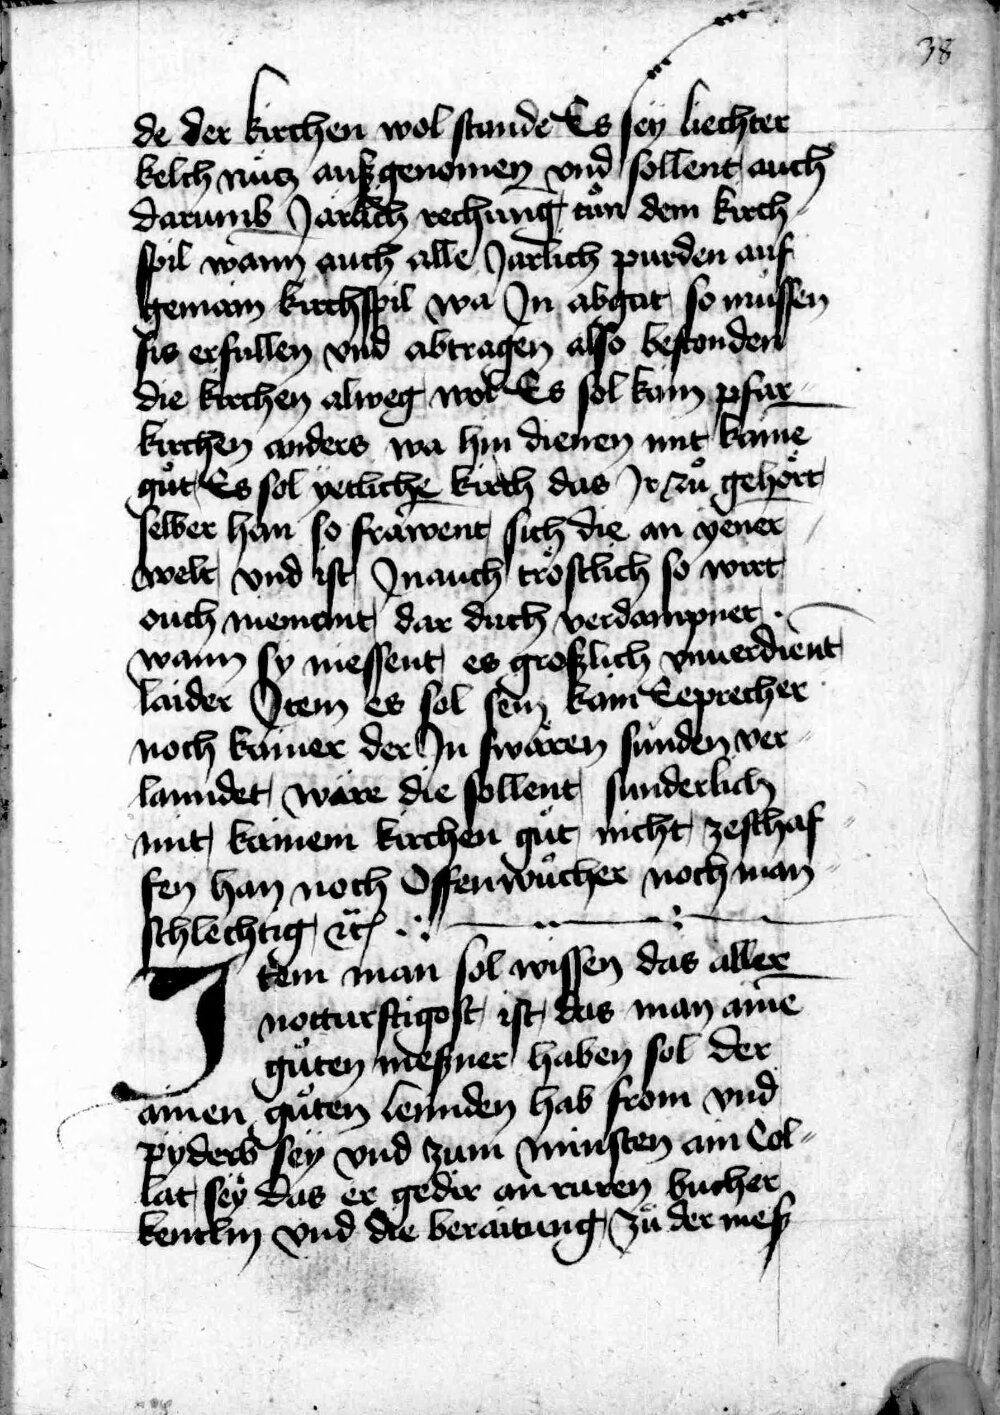 38
de der kirchen wol stande Es sey liechter
kelch nücz auszgenomen vnd sollent auch
darumb Järlich rechung tůn dem kirch-
spil wann auch alle Jarlich purden auf
gemain kirchspil wa In abgat so müssen
sis erfullen vnd abtragen also bestonden
die kirchen alweg wol Es sol kain pfar-
kirchen anders wa hin dienen mit kaine
gůt Es sol yetliche kirch das Ir zů gehört
selber han so fräwent sich die an yener
welt vnd ist In auch tröstlich so wirt
ouch niement dar durch verdampnet.
wann sy niessent es groszlich vnuerdient
laider Item es sol sein kain Eeprecher
noch kainer der In swären sünden ver-
lanndet wäre die sollent sunderlich
mit kainem kirchen gůt nicht zeschaf-
fen han noch Offenwůcher noch man-
schlechtig etc
Item man sol wissen das aller
notturftigost ist das man aine
gůten meszner haben sol der
ainen gůten lenmden hab from vnd
pyderb sey vnd zum minsten ain Col-
lat sey das er gedir anruren bucher
kentlin vnd die beraitung zů der mesz